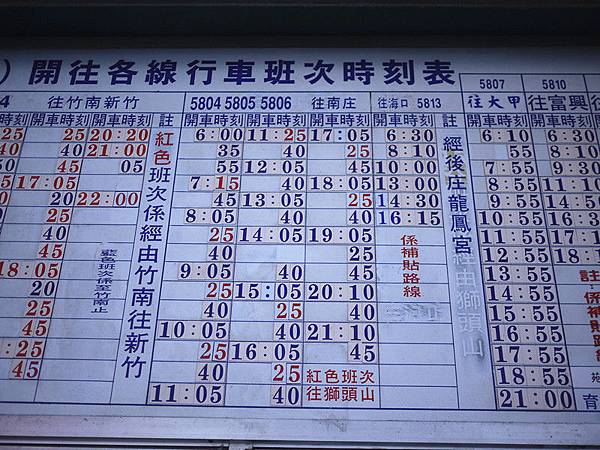 )開往各線行車班次時刻表
4 往竹南新竹
5804 5805 5806 往南庄
往海口 5813
5807
往大甲
5810
往富興
開車時刻 開車時刻 開車時刻 註 開車時刻 開車時刻 開車時刻 開車時刻 註 開車時刻 開車時刻
25 25 20:20 6:00 11:25 17:05 6:30 6:10 6:30
40 40 21:00 35 40 25 8:10 55 8:10
50 45 05 55 12:05 45 10:00 7:55 9:30
5 17:05 7:15 40 18:05 13:00 8:55 11:10
20 22:00 45 13:05 25 14:30 9:55
25 8:05 40 40 16:15 10:55
40 25 14:05 19:05 11:55
45 40 25 12:55
18:05 9:05 40 45 13:55
20 25 15:05 20:10 14:55
25 40 25 40 15:55
45 10:05 40 21:10 16:55
:25 25 16:05 45 17:55
45 40 25 18:55
11:05 40 21:00
紅色班次係經由竹南往新竹
藍色班次係至竹南止
紅色班次
往獅頭山
係補貼路線
經後庄龍鳳宮
經由獅頭山
註:係補貼路